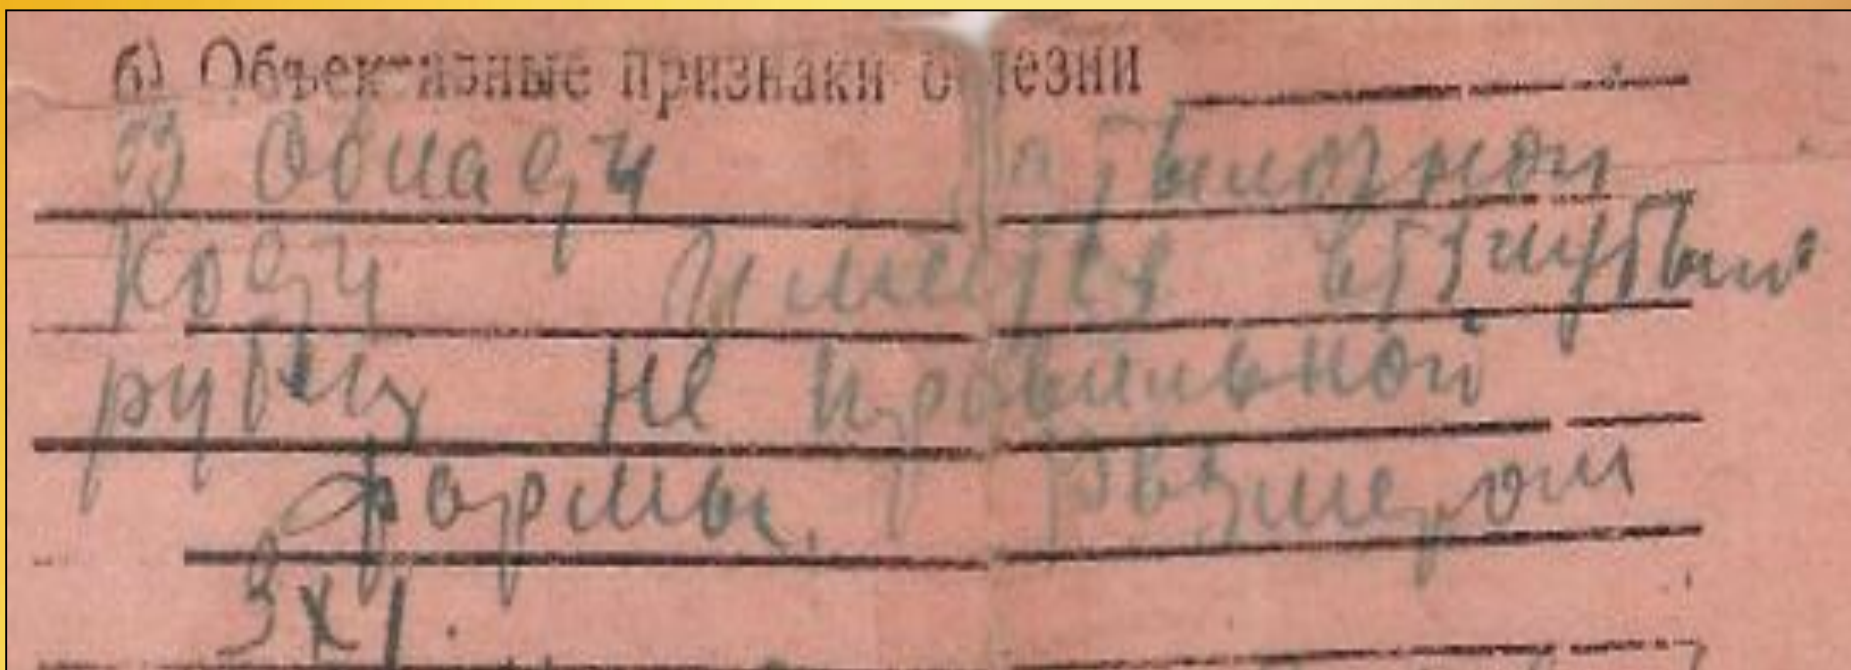 б) Объективные признаки болезни
В области затылочной
кости имеется втянутый
рубец не правильной
формы, размером
3х1.